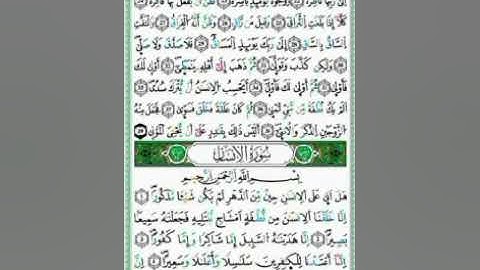 إِلَىٰ رَبِّهَا نَاظِرَةٌ وَوُجُوهٌ يَوْمَئِذٍ بَاسِرَةٌ تَظُنُّ أَنْ يُفْعَلَ بِهَا فَاقِرَةٌ
كَلَّا إِذَا بَلَغَتِ التَّرَاقِيَ وَقِيلَ مَن رَّاقٍ وَظَنَّ أَنَّهُ الْفِرَاقُ وَالْتَفَّتِ
السَّاقُ بِالسَّاقِ إِلَىٰ رَبِّكَ يَوْمَئِذٍ الْمَسَاقُ فَلَا صَدَّقَ وَلَا صَلَّىٰ
وَلَٰكِن كَذَّبَ وَتَوَلَّىٰ ثُمَّ ذَهَبَ إِلَىٰ أَهْلِهِ يَتَمَطَّىٰ أَوْلَىٰ لَكَ
فَأَوْلَىٰ ثُمَّ أَوْلَىٰ لَكَ فَأَوْلَىٰ أَيَحْسِبُ الْإِنسَٰنُ أَن يُتْرَكَ سُدًى
أَلَمْ يَكُ نُطْفَةً مِّن مَّنِيٍّ تُمْنَىٰ ثُمَّ كَانَ عَلَقَةً فَخَلَقَ فَسَوَّىٰ فَجَعَلَ مِنْهُ
الزَّوْجَيْنِ الذَّكَرَ وَالْأُنثَىٰ أَلَيْسَ ذَٰلِكَ بِقَٰدِرٍ عَلَىٰ أَن يُحْيِيَ الْمَوْتَىٰ
سُورَةُ الْإِنسَانِ
بِسْمِ اللَّهِ الرَّحْمَٰنِ الرَّحِيمِ
هَلْ أَتَىٰ عَلَى الْإِنسَٰنِ حِينٌ مِّنَ الدَّهْرِ لَمْ يَكُن شَيْئًا مَّذْكُورًا ١
إِنَّا خَلَقْنَا الْإِنسَٰنَ مِن نُّطْفَةٍ أَمْشَاجٍ نَّبْتَلِيهِ فَجَعَلْنَٰهُ سَمِيعًا
بَصِيرًا ٢ إِنَّا هَدَيْنَٰهُ السَّبِيلَ إِمَّا شَاكِرًا وَإِمَّا كَفُورًا ٣
إِنَّا أَعْتَدْنَا لِلْكَٰفِرِينَ سَلَٰسِلًا وَأَغْلَٰلًا وَسَعِيرًا ٤ إِنَّ